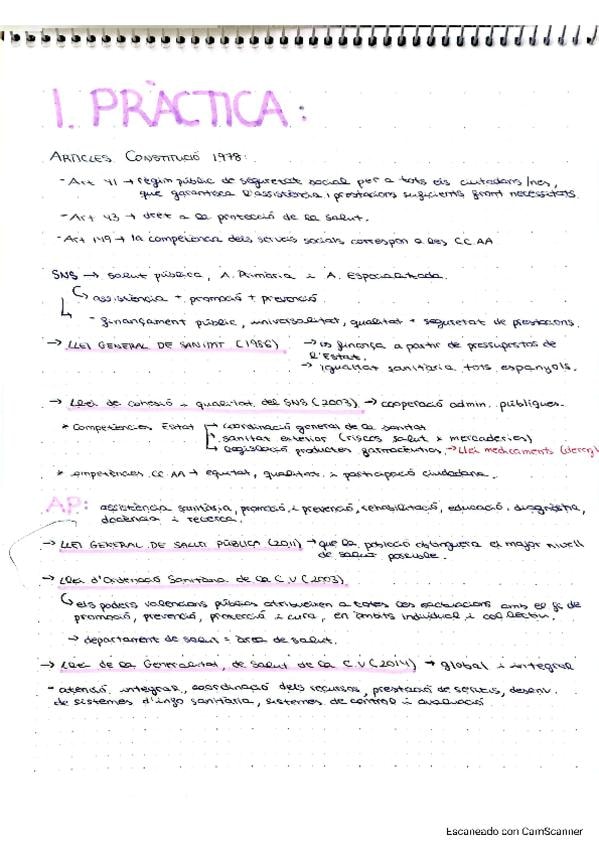 1. PRÀCTICA:
ARTICLES CONSTITUCIÓ 1978:
- Art 41 → règim públic de seguretat social per a tots els ciutadans/nes,
que garantisca l'assistència i prestacions suficients front necessitats.
- Art 43 → dret a la protecció de la salut.
- Art 149 → la competència dels serveis socials correspon a les CC.AA
SNS → salut pública, A. Primària i A. Especialitzada.
assistència + promoció + prevenció.
- finançament públic, universalitat, qualitat + seguretat de prestacions.
→ LLEI GENERAL DE SANITAT (1986) → es finança a partir de pressupostos de
l'Estat.
→ igualtat sanitària tots espanyols.
→ Llei de cohesió i qualitat del SNS (2003) → cooperació admin. públiques.
* Competències Estat → coordinació general de la sanitat
→ sanitat exterior (riscos salut x mercaderies)
→ legislació productes farmacèutics. → Llei medicaments
* competències CC.AA → equitat, qualitat i participació ciudadana.
AP: assistència sanitària, promoció i prevenció, rehabilitació, educació, diagnòstica,
docència i recerca.
→ LLEI GENERAL DE SALUT PÚBLICA (2011) → que la població obtinguera el major nivell
de salut possible.
→ Llei d'Ordenació Sanitària de la C.V (2003)
els poders valencians públics atribueixen a totes les actuacions amb el fi de
promoció, prevenció, protecció i cura, en àmbits individual i col·lectiu.
→ departament de salut = àrea de salut.
→ Llei de la Generalitat, de Salut de la C.V (2014) → global i integral
- atenció integral, coordinació dels recursos, prestació de serveis, desenv.
de sistemes d'info sanitària, sistemes de control i avaluació
Escaneado con CamScanner